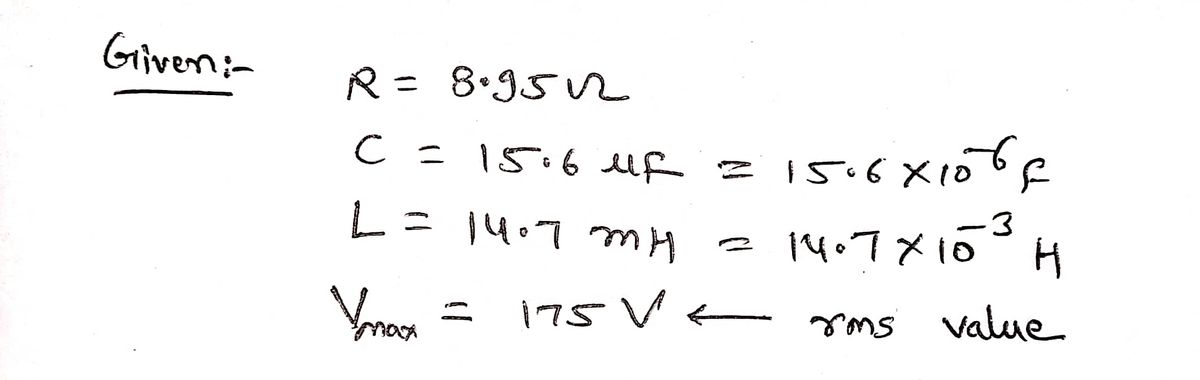 Given:-
R = 8.95Ω
C = 15.6 μF = 15.6 × 10⁻⁶ F
L = 14.7 mH = 14.7 × 10⁻³ H
Vmax = 175 V ← rms value